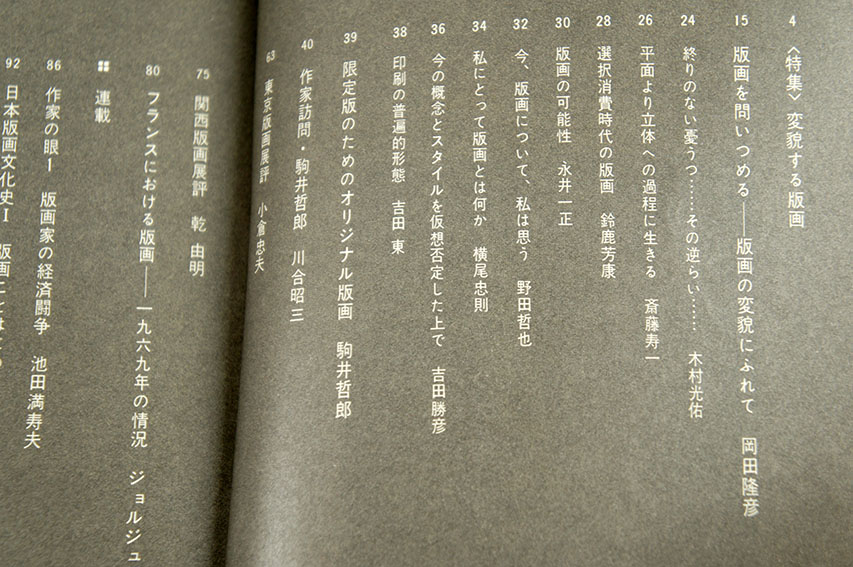 4 〈特集〉変貌する版画
15 版画を問いつめる——版画の変貌にふれて 岡田隆彦
24 終りのない憂うつ……その逆らい…… 木村光佑
26 平面より立体への過程に生きる 斎藤寿一
28 選択消費時代の版画 鈴鹿芳康
30 版画の可能性 永井一正
32 今、版画について、私は思う 野田哲也
34 私にとって版画とは何か 横尾忠則
36 今の概念とスタイルを仮想否定した上で 吉田勝彦
38 印刷の普遍的形態 吉田 東
39 限定版のためのオリジナル版画 駒井哲郎
40 作家訪問・駒井哲郎 川合昭三
63 東京版画展評 小倉忠夫
75 関西版画展評 乾 由明
80 フランスにおける版画——一九六九年の情況 ジョルジュ
連載
86 作家の眼Ⅰ 版画家の経済闘争 池田満寿夫
92 日本版画文化史Ⅰ 版画